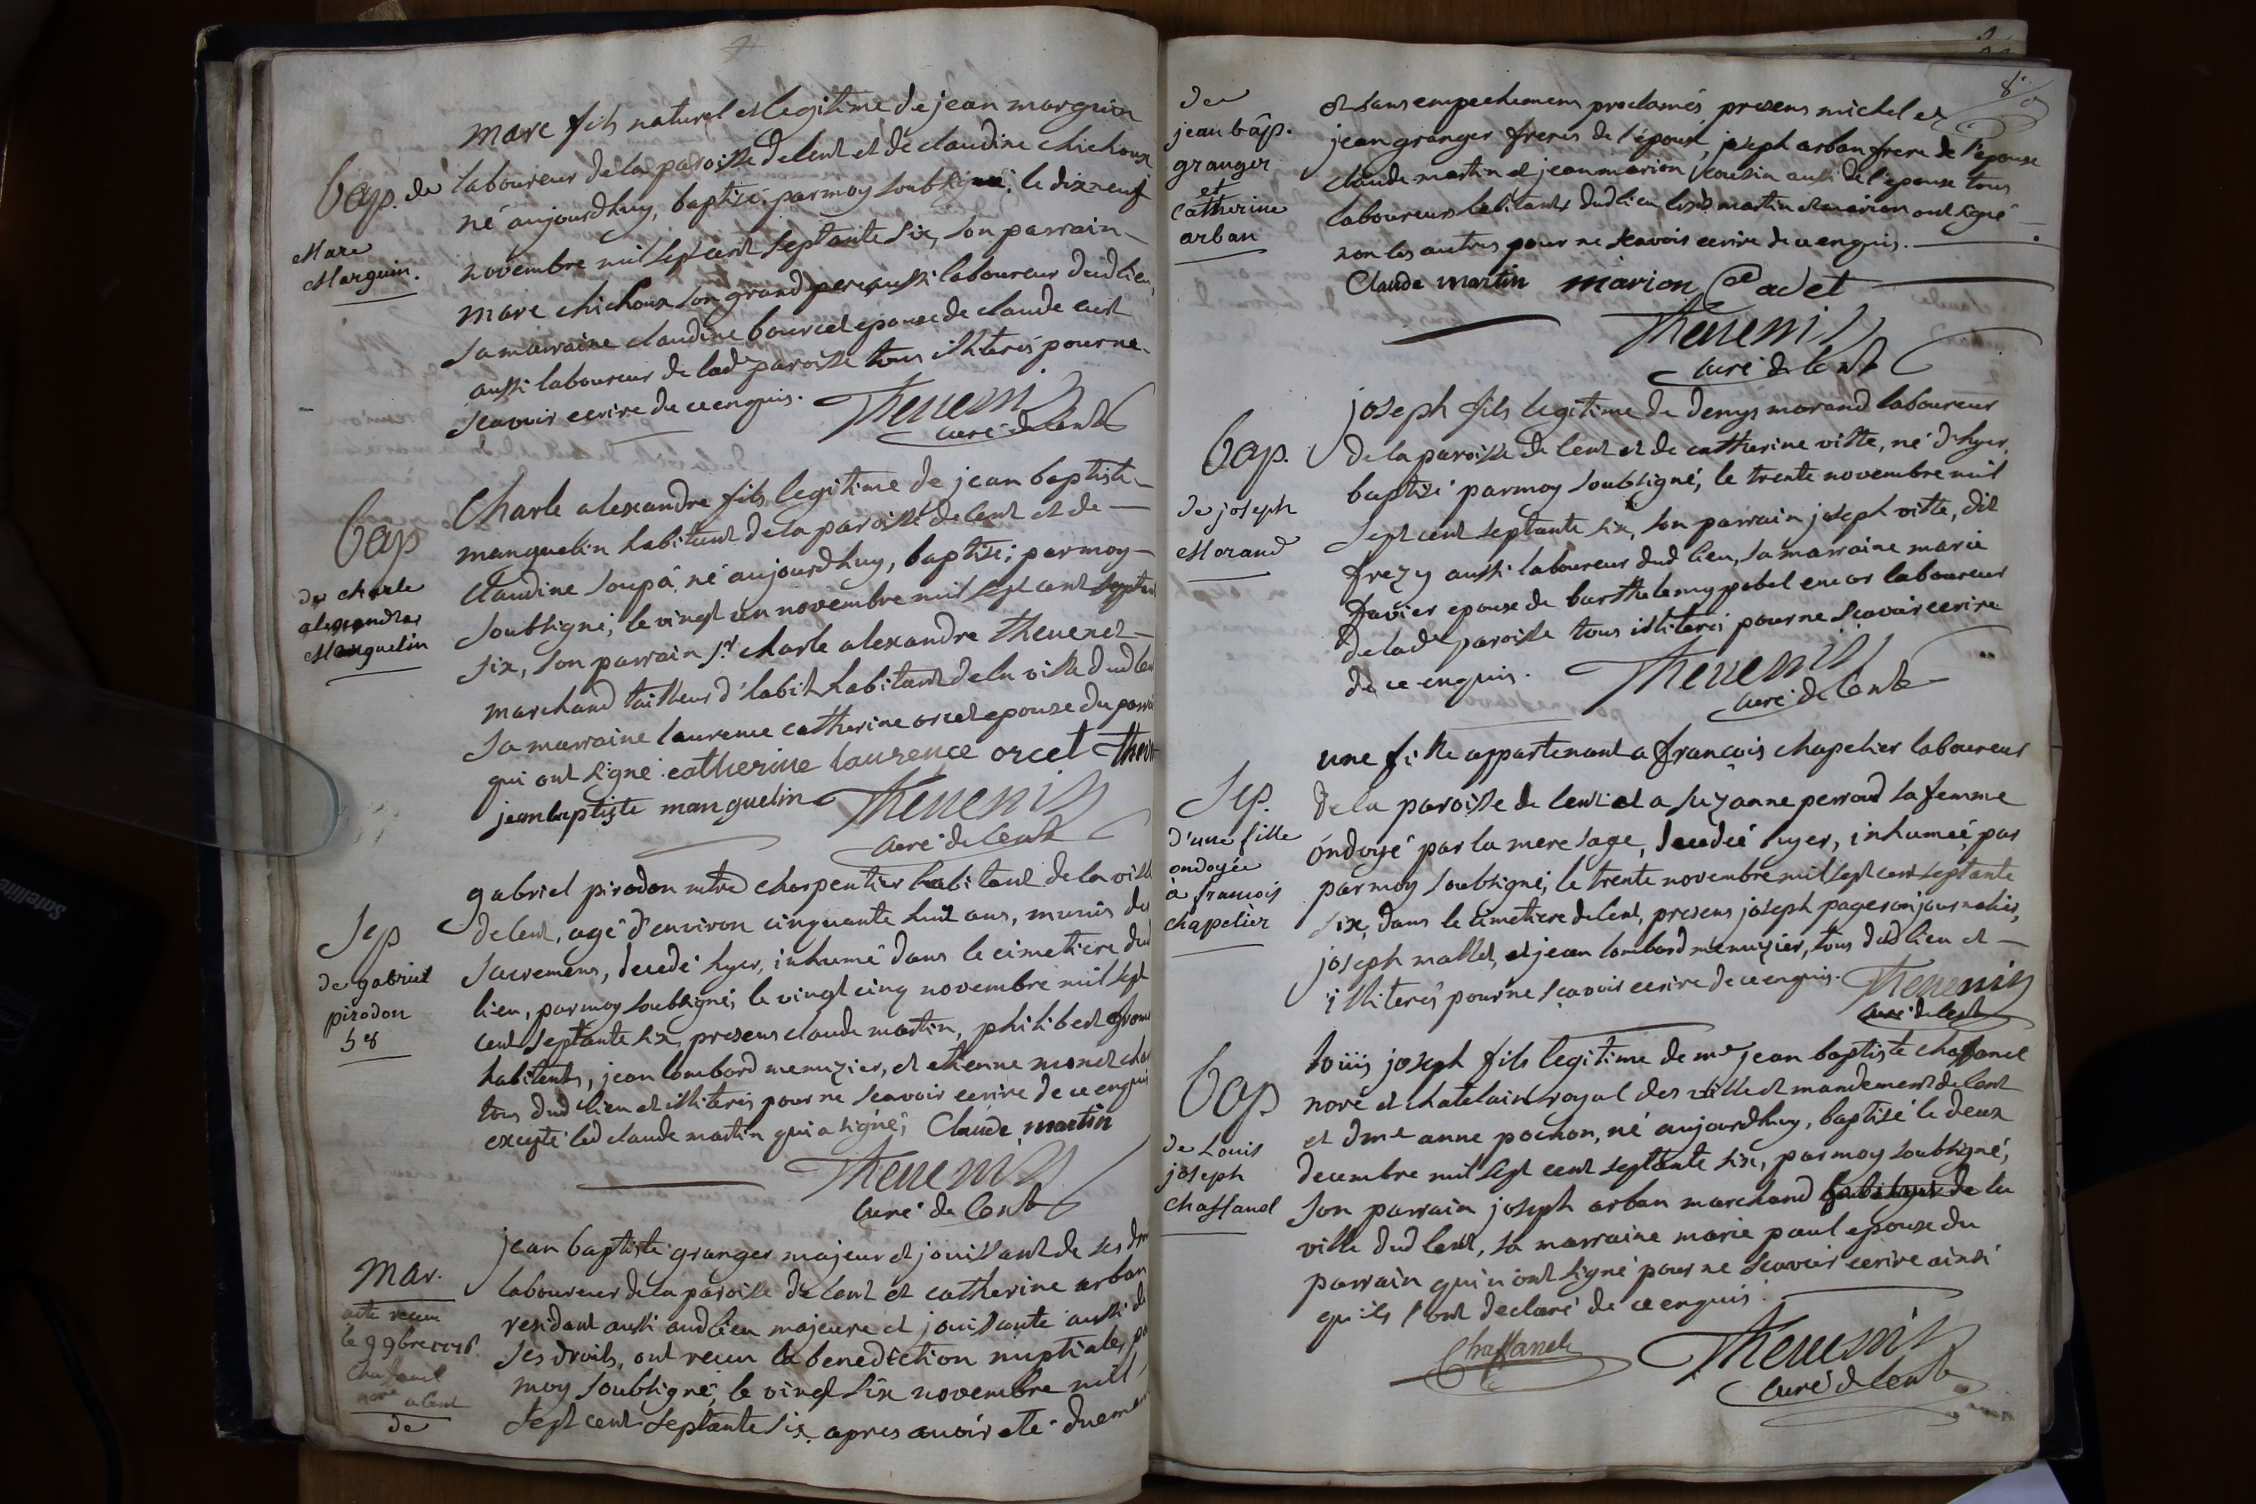 Bap. de
Marc
Marguin.
marc fils naturel et legitime de jean marguin
laboureur de la paroisse de lent et de claudine chichoux
né aujourdhuy, baptisé parmoy soubsigné, le dixneuf
novembre mil sept cent septante six, son parrain
marc chichoux son grand pere aussi laboureur dud lieu,
sa marraine claudine bourcet epouse de claude
aussi laboureur de lade paroisse tous illiterés pour ne
scavoir ecrire de ce enquis.
Thevenin
curé de lent
Bap
de charle
alexandre
Manguelin
Charle alexandre fils legitime de jean baptiste
manguelin habitant de la paroisse de lent et de
Claudine soupâ né aujourdhuy, baptisé parmoy
soubsigné, le vingt un novembre mil sept cent
six, son parrain sr. charle alexandre thevenet
marchand tailleur d'habit habitant de la ville dud lent
sa marraine laurence catherine orcet epouse du
qui ont signé. catherine laurence orcet
jean baptiste manguelin Thevenin
curé de lent
Sep
de gabriel
pirodon
58
gabriel pirodon charpentier habitant de la ville
de lent, agé d'environ cinquante huit ans, munis des
sacremens, decedé hyer, inhumé dans le cimetiere dud
lien, par moy soubsigné, le vingt cinq novembre mil sept
cent septante six, presens claude martin, philibert
habitants, jean lombard menuzier, et etienne monet
tous dud lieu et illiterés pour ne scavoir ecrire de ce enquis
excepté led claude martin qui a signé, Claude martin
Thevenin
curé de lent
mar.
acte recu
le 9 9bre 1776
Chaffanel
nore a lent
de
jean baptiste granger majeur et jouissant de ses
laboureur de la paroisse de lent et catherine arban
residant aussi aud lieu majeure et jouissante aussi de
ses droits, ont recu la benediction nuptiale,
moy soubsigné, le vingt six novembre mil
sept cent septante six, apres avoir eté
8
de
jean bap.
granger
et
catherine
arban
et sans empechemens proclamés, presens michel et
jean granger freres de l'époux, joseph arban frere de l'epouse
claude martin et jean marion cousin aussi de l'epouse tous
laboureurs habitants dud lieu, lesd martin et marion ont signé
non les autres pour ne scavoir ecrire de ce enquis.
Claude martin marion cadet
Thevenin
curé de lent
Bap.
de joseph
Morand
joseph fils legitime de denys morand laboureur
de la paroisse de lent et de catherine vitte, né d'hyer,
baptisé parmoy soubsigné, le trente novembre mil
sept cent septante six, son parrain joseph vitte, dit
frezy aussi laboureur dud lieu, sa marraine marie
favier epouse de barthelemy pobel encor laboureur
de lade paroisse tous illiterés pour ne scavoir ecrire
de ce enquis.
Thevenin
curé de lent
Sep.
d'une fille
ondoyée
a francois
chapelier
une fille appartenant a francois chapelier laboureur
de la paroisse de lent et a suzanne perraud sa femme
óndoyé par la mere sage, decedée hyer, inhumeé, par
par moy soubsigné, le trente novembre mil sept cent septante
six, dans le cimetiere de lent, presens joseph pageron journalier,
joseph mallet, et jean lombard menuzier, tous dud lieu et
illiterés pour ne scavoir ecrire de ce enquis. Thevenin
curé de lent
Bap
de Louis
joseph
chaffanel
loüis joseph fils legitime de me jean baptiste chaffanel
noré et chatelain royal des ville et mandement de lent
et dme anne pochon, né aujourdhuy, baptisé le deux
decembre mil sept cent septante six, par moy soubsigné,
son parrain joseph arban marchand habitant de la
ville dud lent, sa marraine marie paul epouse du
parrain qui n'ont signé pour ne scavoir ecrire ainsi
qu'ils l'ont declaré de ce enquis.
Chaffanel
Thevenin
curé de lent